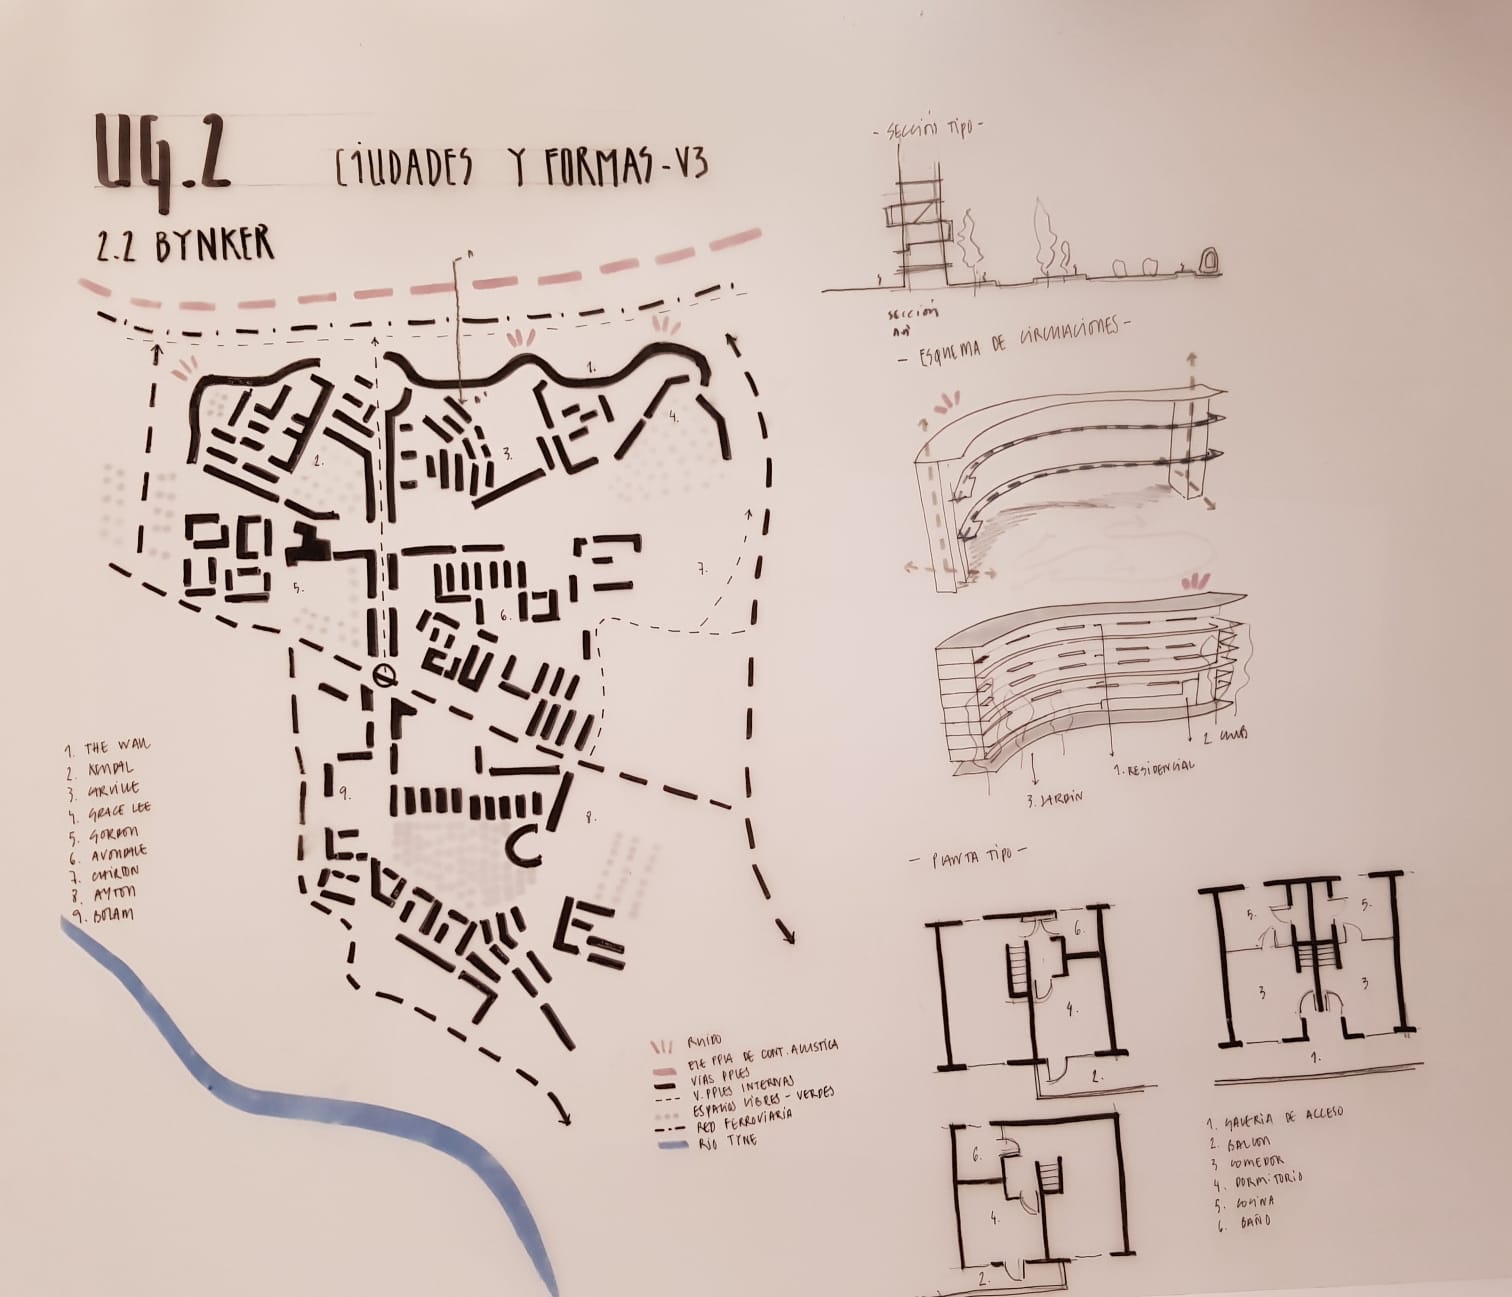 UG.2
CIUDADES Y FORMAS-V3
2.2 BYNKER
1.
2.
3.
4.
5.
6.
7.
8.
9.
1. THE WALL
2. KENDAL
3. CARVILLE
4. GRACE LEE
5. GORDON
6. AVONDALE
7. CHIRON
8. AYTON
9. BOLAM
RUIDO
EJE PPIA DE CONT. ACUSTICA
VÍAS PPLES
V. PPLES INTERNAS
ESPACIOS LIBRES - VERDES
RED FERROVIARIA
RIO TYNE
- SECCIÓN TIPO -
SECCIÓN
AA'
- ESQUEMA DE CIRCULACIONES -
1. RESIDENCIAL
2 CLUB
3. JARDIN
- PLANTA TIPO -
6.
4.
2.
5.
5.
3
3
1.
6.
4.
2.
1. GALERIA DE ACCESO
2. BALCON
3 COMEDOR
4. DORMITORIO
5. COCINA
6. BAÑO